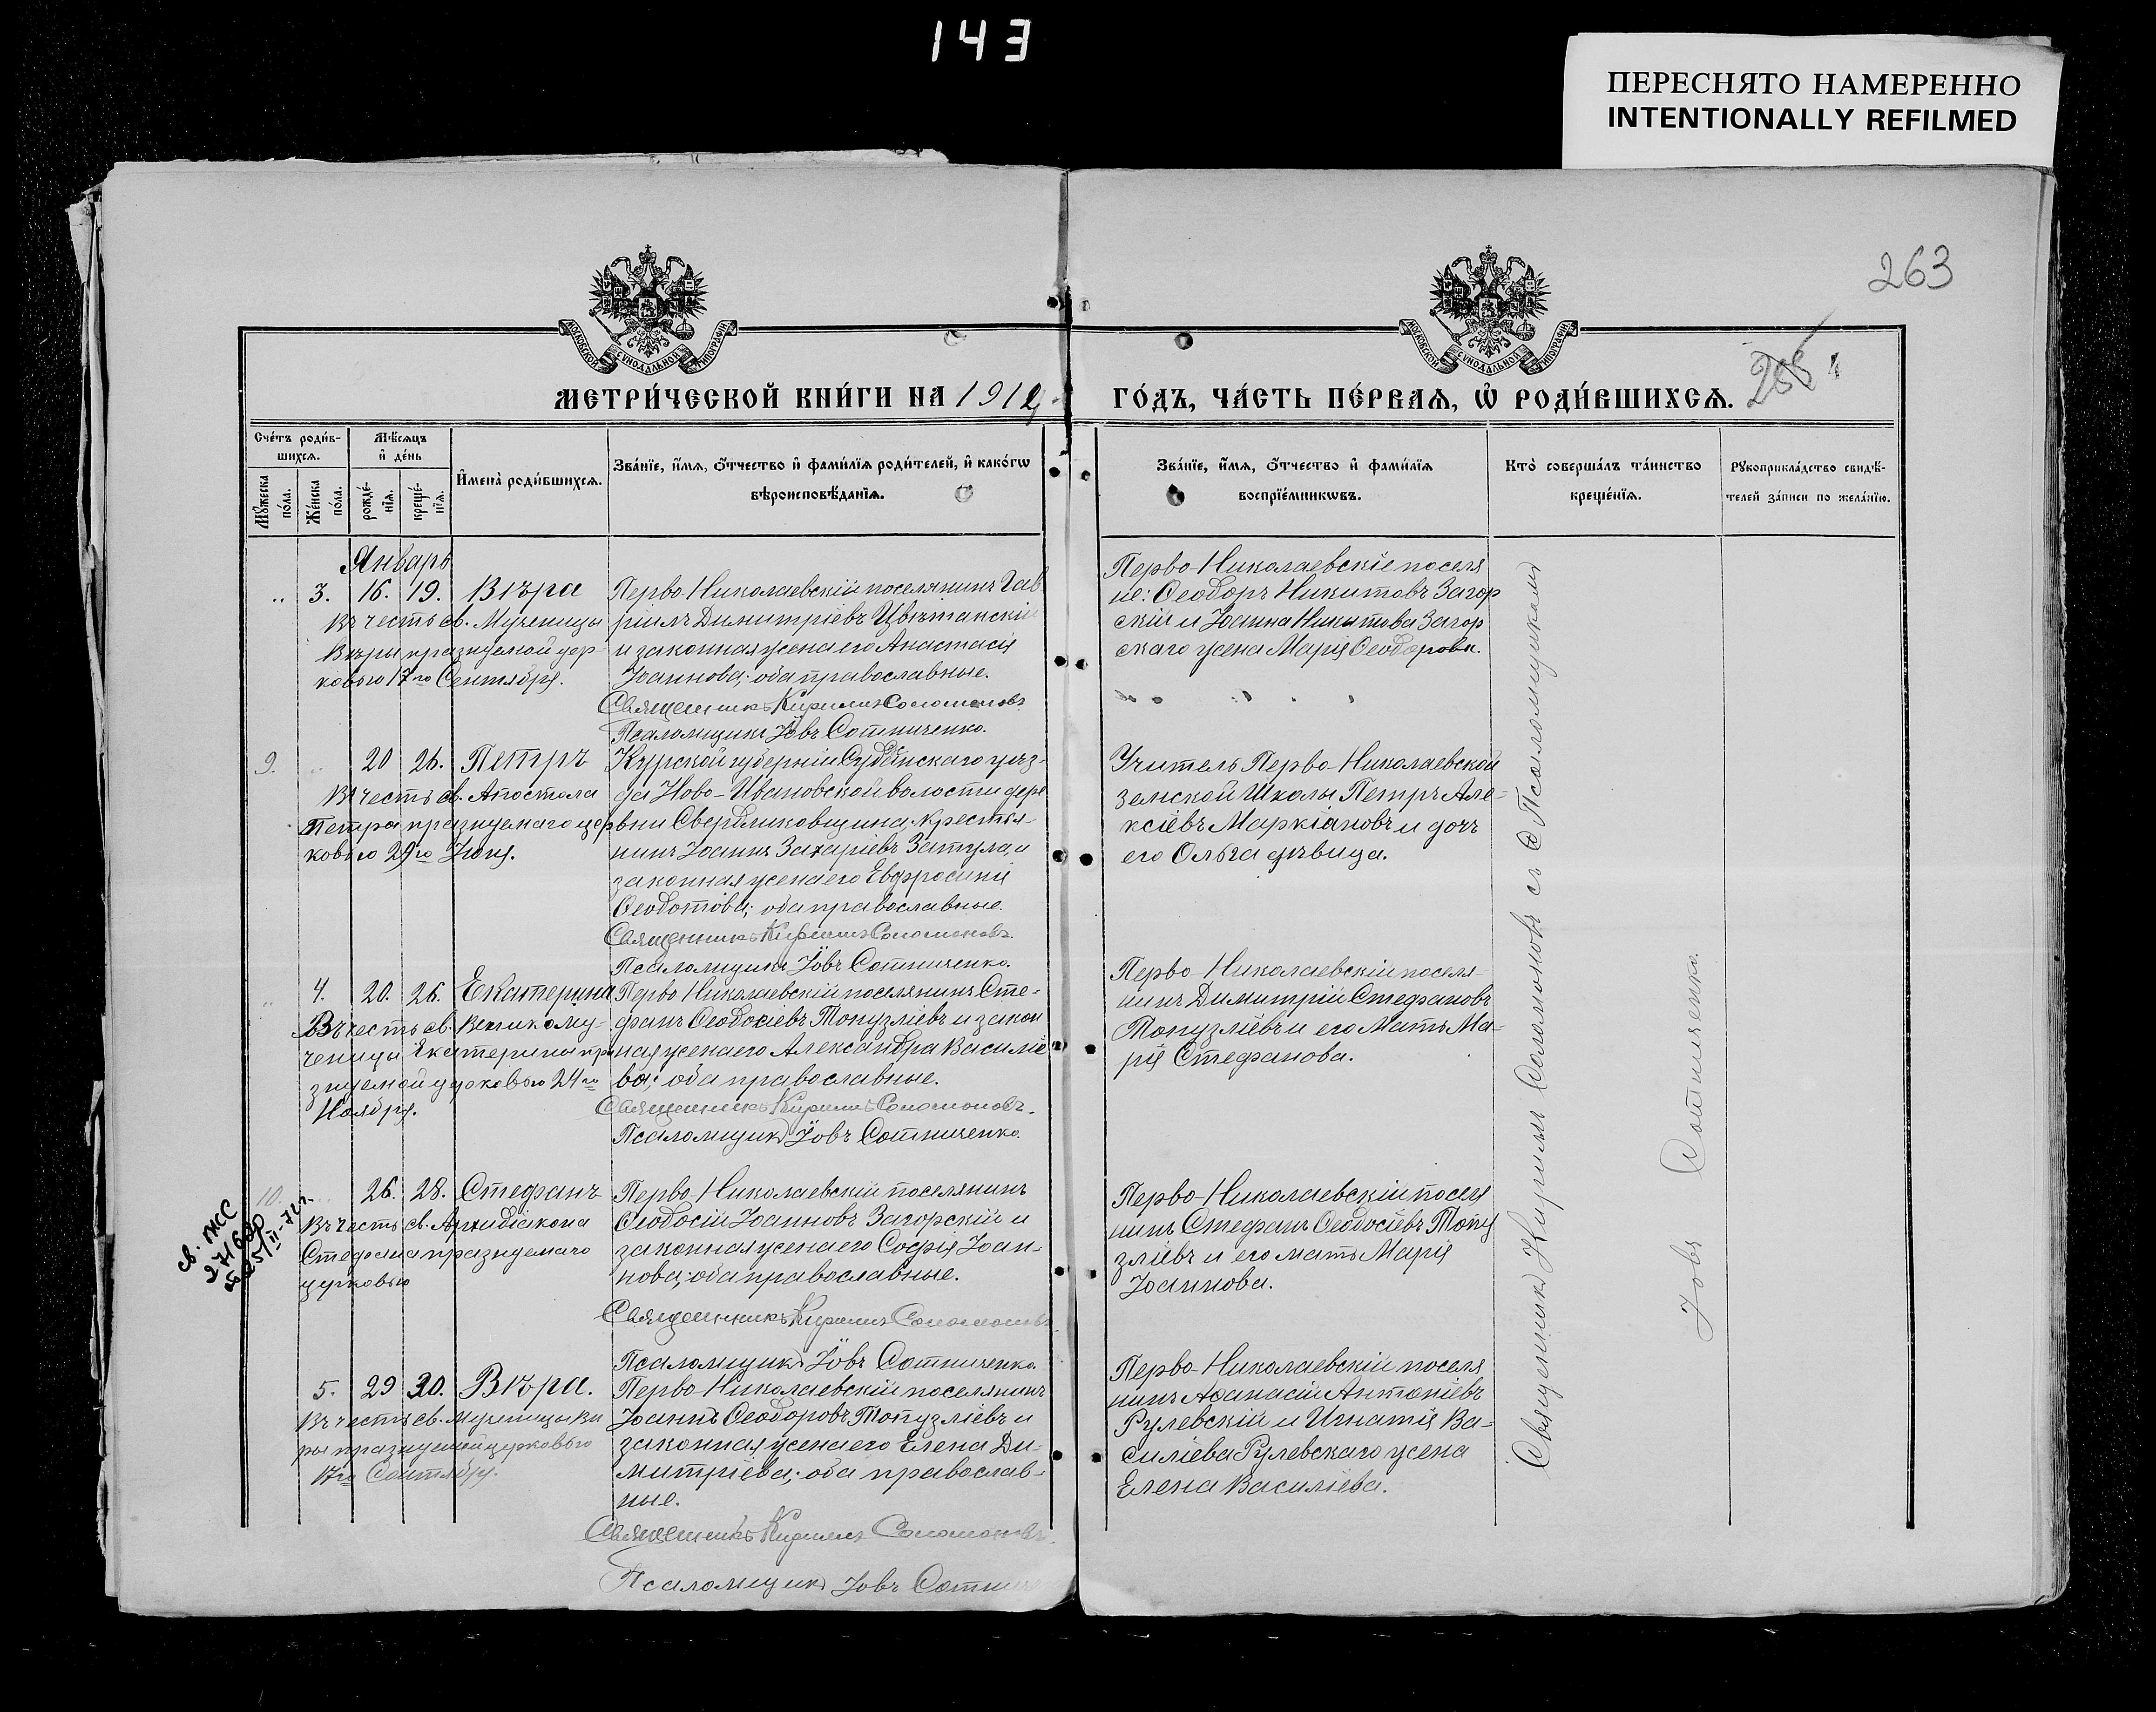 143
ПЕРЕСНЯТО НАМЕРЕННО
INTENTIONALLY REFILMED
263
МОСКОВСКОЙ СѴНОДАЛЬНОЙ ТИПОГРАФІИ
МОСКОВСКОЙ СѴНОДАЛЬНОЙ ТИПОГРАФІИ
МЕТРИ́ЧЕСКОЙ КНИ́ГИ НА 1912
ГО́ДЪ, ЧА́СТЬ ПЕ́РВАѦ, Ѽ РОДИ́ВШИХСѦ.
Сче́тъ роди́в-
шихсѧ.
Мѣ́сѧцъ
и҆ де́нь
Мꙋ́жеска
по́ла.
Же́нска
по́ла.
рожде́-
нїѧ.
креще́-
нїѧ.
И҆мена̀ роди́вшихсѧ.
Зва́нїе, и҆́мѧ, ѻ҆́тчество и҆ фами́лїѧ роди́телей, и҆ како́гѡ
вѣроисповѣ́данїѧ.
Зва́нїе, и҆́мѧ, ѻ҆́тчество и҆ фами́лїѧ
воспрїе́мникѡвъ.
Кто̀ соверша́лъ та́инство
креще́нїѧ.
Рꙋкоприкла́дство свидѣ́-
телей за́писи по жела́нїю.
Январь
3. 16. 19. Вѣра
Въ честь св. Мученицы
Вѣры празнуемой цер-
ковью 17го Сентября.
Перво-Николаевскій поселянинъ Гав
ріилъ Димитріевъ Цвѣтанскій
и законная жена его Анастасія
Іоаннова; оба православные.
Священникъ Кириллъ Соломоновъ
Псаломщикъ Іовъ Сотниченко.
Перво-Николаевскіе поселя
не: Ѳеодоръ Никитовъ Загор
скій и Іоанна Никитова Загор
скаго жена Марія Ѳеодорова.
9. 20 26. Петръ
Въ честь св. Апостола
Петра празнуемаго цер
ковью 29го Іюня.
Курской губерніи Суджанскаго уѣз-
да Ново-Ивановской волости дере
вни Свердликовщина, крестья-
нинъ Іоаннъ Захаріевъ Затула, и
законная жена его Евфросинія
Ѳеодотова; оба православные.
Священникъ Кириллъ Соломоновъ.
Псаломщикъ Іовъ Сотниченко.
Учитель Перво-Николаевской
земской Школы Петръ Але-
ксіевъ Маркіановъ и дочь
его Ольга дѣвица.
4. 20. 26. Екатерина
Въ честь св. Великому-
ченицы Екатерины пра
знуемой церковью 24го
Ноября.
Перво-Николаевскій поселянинъ Сте-
фанъ Ѳеодосіевъ Топузліевъ и закон
ная жена его Александра Василіе
ва; оба православные.
Священникъ Кириллъ Соломоновъ.
Псаломщикъ Іовъ Сотниченко.
Перво-Николаевскій поселя-
нинъ Димитрій Стефановъ
Топузліевъ и его Мать Ма-
рія Стефанова.
10. 26. 28. Стефанъ
Въ честь св. Архидіакона
Стефана празнуемаго
церковью
Перво-Николаевскій поселянинъ
Ѳеодосій Іоанновъ Загорскій и
законная жена его Софія Іоан-
нова; оба православные.
Священникъ Кириллъ Соломоновъ.
Псаломщикъ Іовъ Сотниченко.
Перво-Николаевскій поселя
нинъ Стефанъ Ѳеодосіевъ Топу
зліевъ и его мать Марія
Іоаннова.
5. 29 30. Вѣра.
Въ честь св. Мученицы Вѣ
ры празнуемой церковью
17го Сентября.
Перво-Николаевскій поселянинъ
Іоаннъ Ѳеодоровъ Топузліевъ и
законная жена его Елена Ди-
митріева; оба православ-
ные.
Священникъ Кириллъ Соломоновъ.
Псаломщикъ Іовъ
Перво-Николаевскій поселя
нинъ Аѳанасій Антоніевъ
Рулевскій и Игнатія Ва-
силіева Рулевскаго жена
Елена Василіева.
Священникъ Кириллъ Соломоновъ съ Псаломщикомъ
Іовъ Сотниченко.